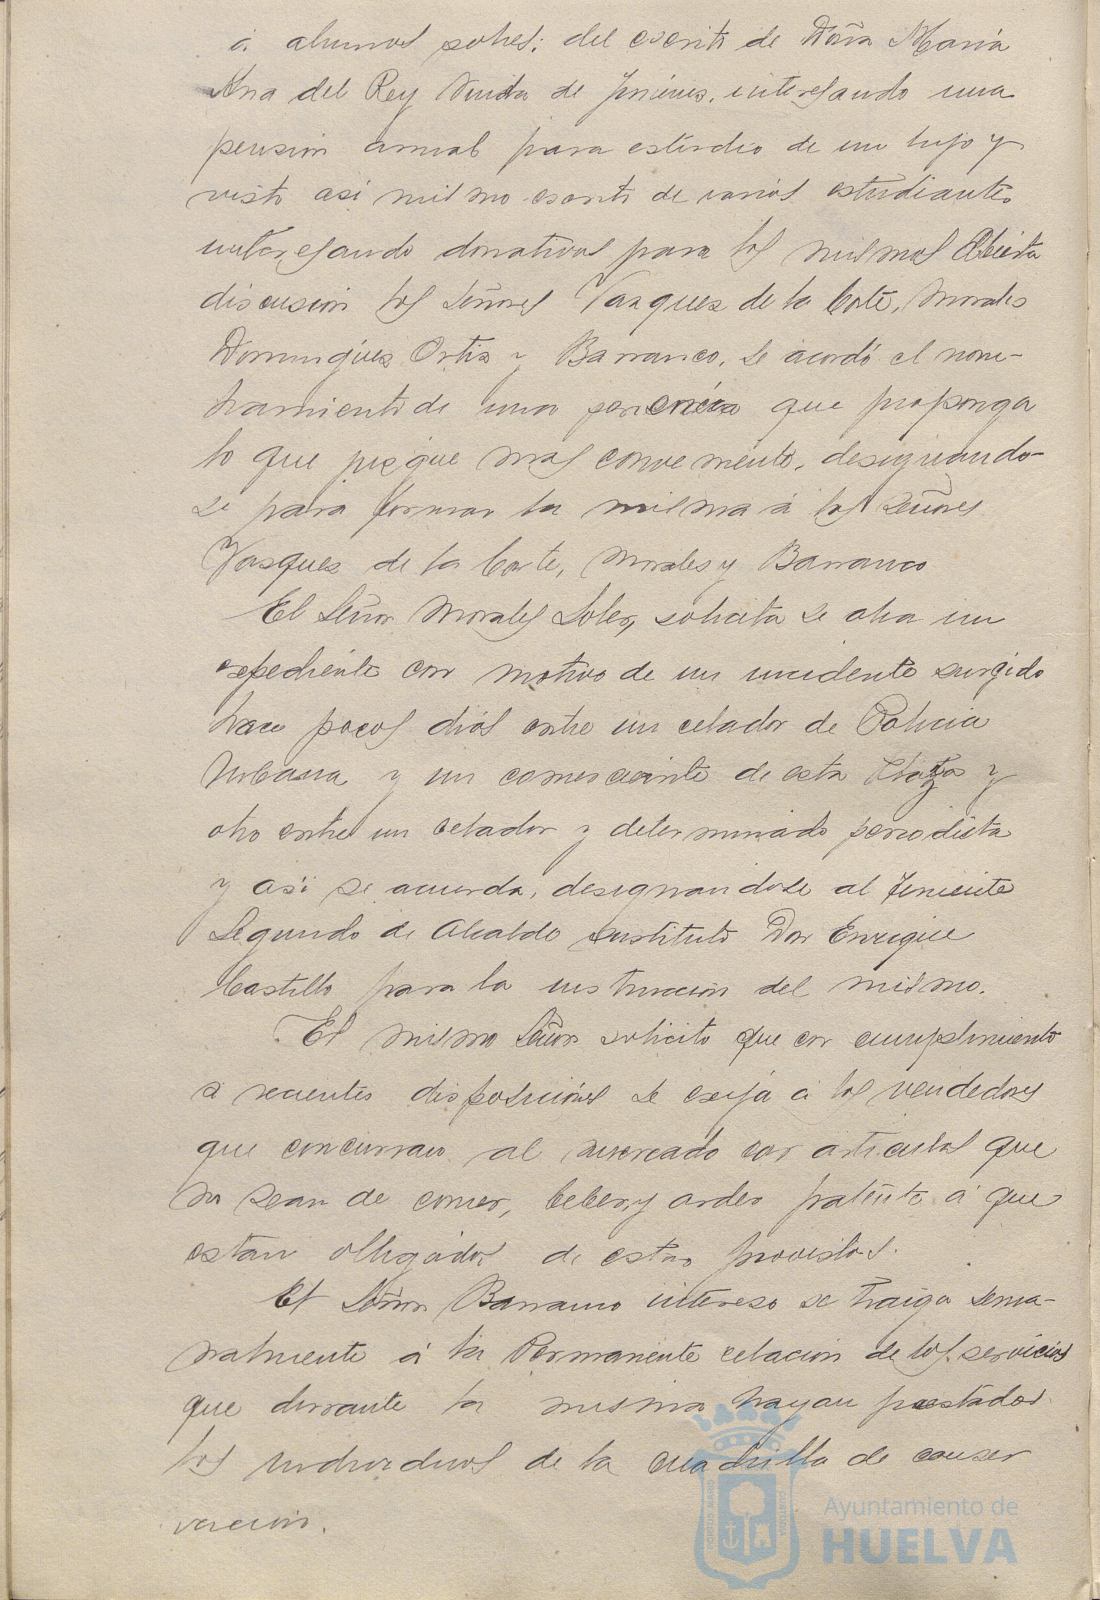 á alumnos pobres; del escrito de Doña María
Ana del Rey Viuda de Jiménez, interesando una
pensión anual para estudio de un hijo y
visto así mismo escrito de varios estudiantes
interesando donativos para los mismos Abierta
discusión los Señores Vazquez de la Corte, Morales
Dominguez Ortiz y Barranco, se acordó el nom-
bramiento de una ponencia que proponga
lo que juzgue mas conveniente, designando-
se para formar la misma á los Señores
Vasquez de la Corte, Morales y Barranco
El Señor Morales Soler, solicita se abra un
expediente con motivo de un incidente surgido
hace pocos dias entre un celador de Policia
Urbana y un comerciante de esta Plaza y
otro entre un celador y determinado periodista
y así se acuerda, designandose al Teniente
Segundo de Alcalde sustituto Don Enrique
Castillo para la instrucción del mismo.
El mismo Señor solicito que en cumplimiento
a recientes disposiciones se exija á los vendedores
que concurran al mercado con articulos que
no sean de comer, beber y arder patente a que
estan obligados de estar provistos.
El Señor Barranco intereso se traiga sema-
nalmente á la Permanente relacion de los servicios
que durante la misma hayan prestados
los individuos de la cuadrilla de conser
vacion.
Ayuntamiento de
HUELVA